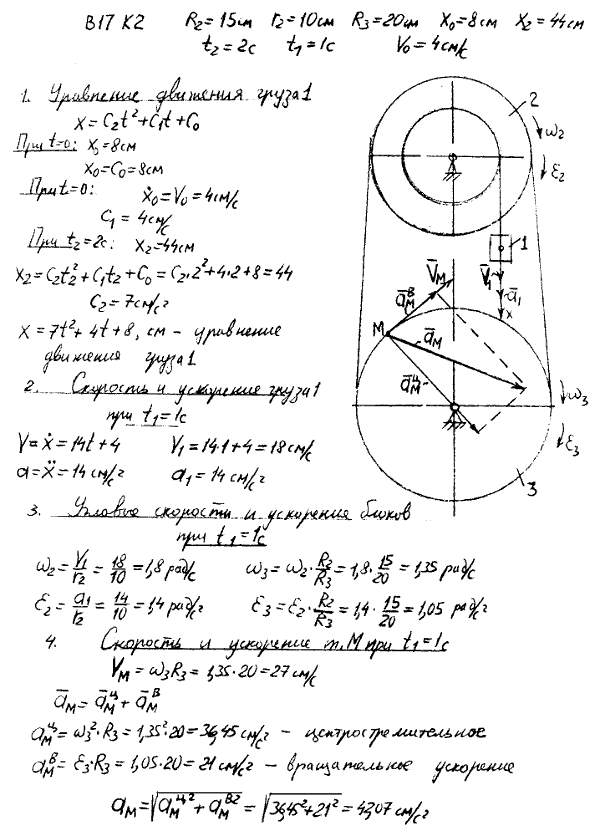 В17 К2 R₂=15см r₂=10см R₃=20см x₀=8см x₂=44см
t₂=2с t₁=1с V₀=4см/с
1. Уравнение движения груза 1
x=C₂t²+C₁t+C₀
При t=0: x₀=8см
x₀=C₀=8см
При t=0: ẋ₀=V₀=4см/с
C₁=4см/с
При t₂=2с: x₂=44см
x₂=C₂t₂²+C₁t₂+C₀=C₂·2²+4·2+8=44
C₂=7см/с²
x=7t²+4t+8, см – уравнение
движения груза 1
2. Скорость и ускорение груза 1
при t₁=1с
V=ẋ=14t+4 V₁=14·1+4=18см/с
a=ẍ=14см/с² a₁=14см/с²
3. Угловые скорости и ускорения блоков
при t₁=1с
ω₂=V₁/r₂=18/10=1,8рад/с ω₃=ω₂·R₂/R₃=1,8·15/20=1,35рад/с
ε₂=a₁/r₂=14/10=1,4рад/с² ε₃=ε₂·R₂/R₃=1,4·15/20=1,05рад/с²
4. Скорость и ускорение т.М при t₁=1с
V_M=ω₃R₃=1,35·20=27см/с
a̅_M=a̅_M^ц+a̅_M^в
a_M^ц=ω₃²·R₃=1,35²·20=36,45см/с² – центростремительное
a_M^в=ε₃·R₃=1,05·20=21см/с² – вращательное ускорение
a_M=√(a_M^ц²+a_M^в²)=√(36,45²+21²)=42,07см/с²
2
ω₂
ε₂
1
V̅_M
V̅₁
a̅_M^в
a̅₁
x
M
a̅_M
a̅_M^ц
ω₃
ε₃
3